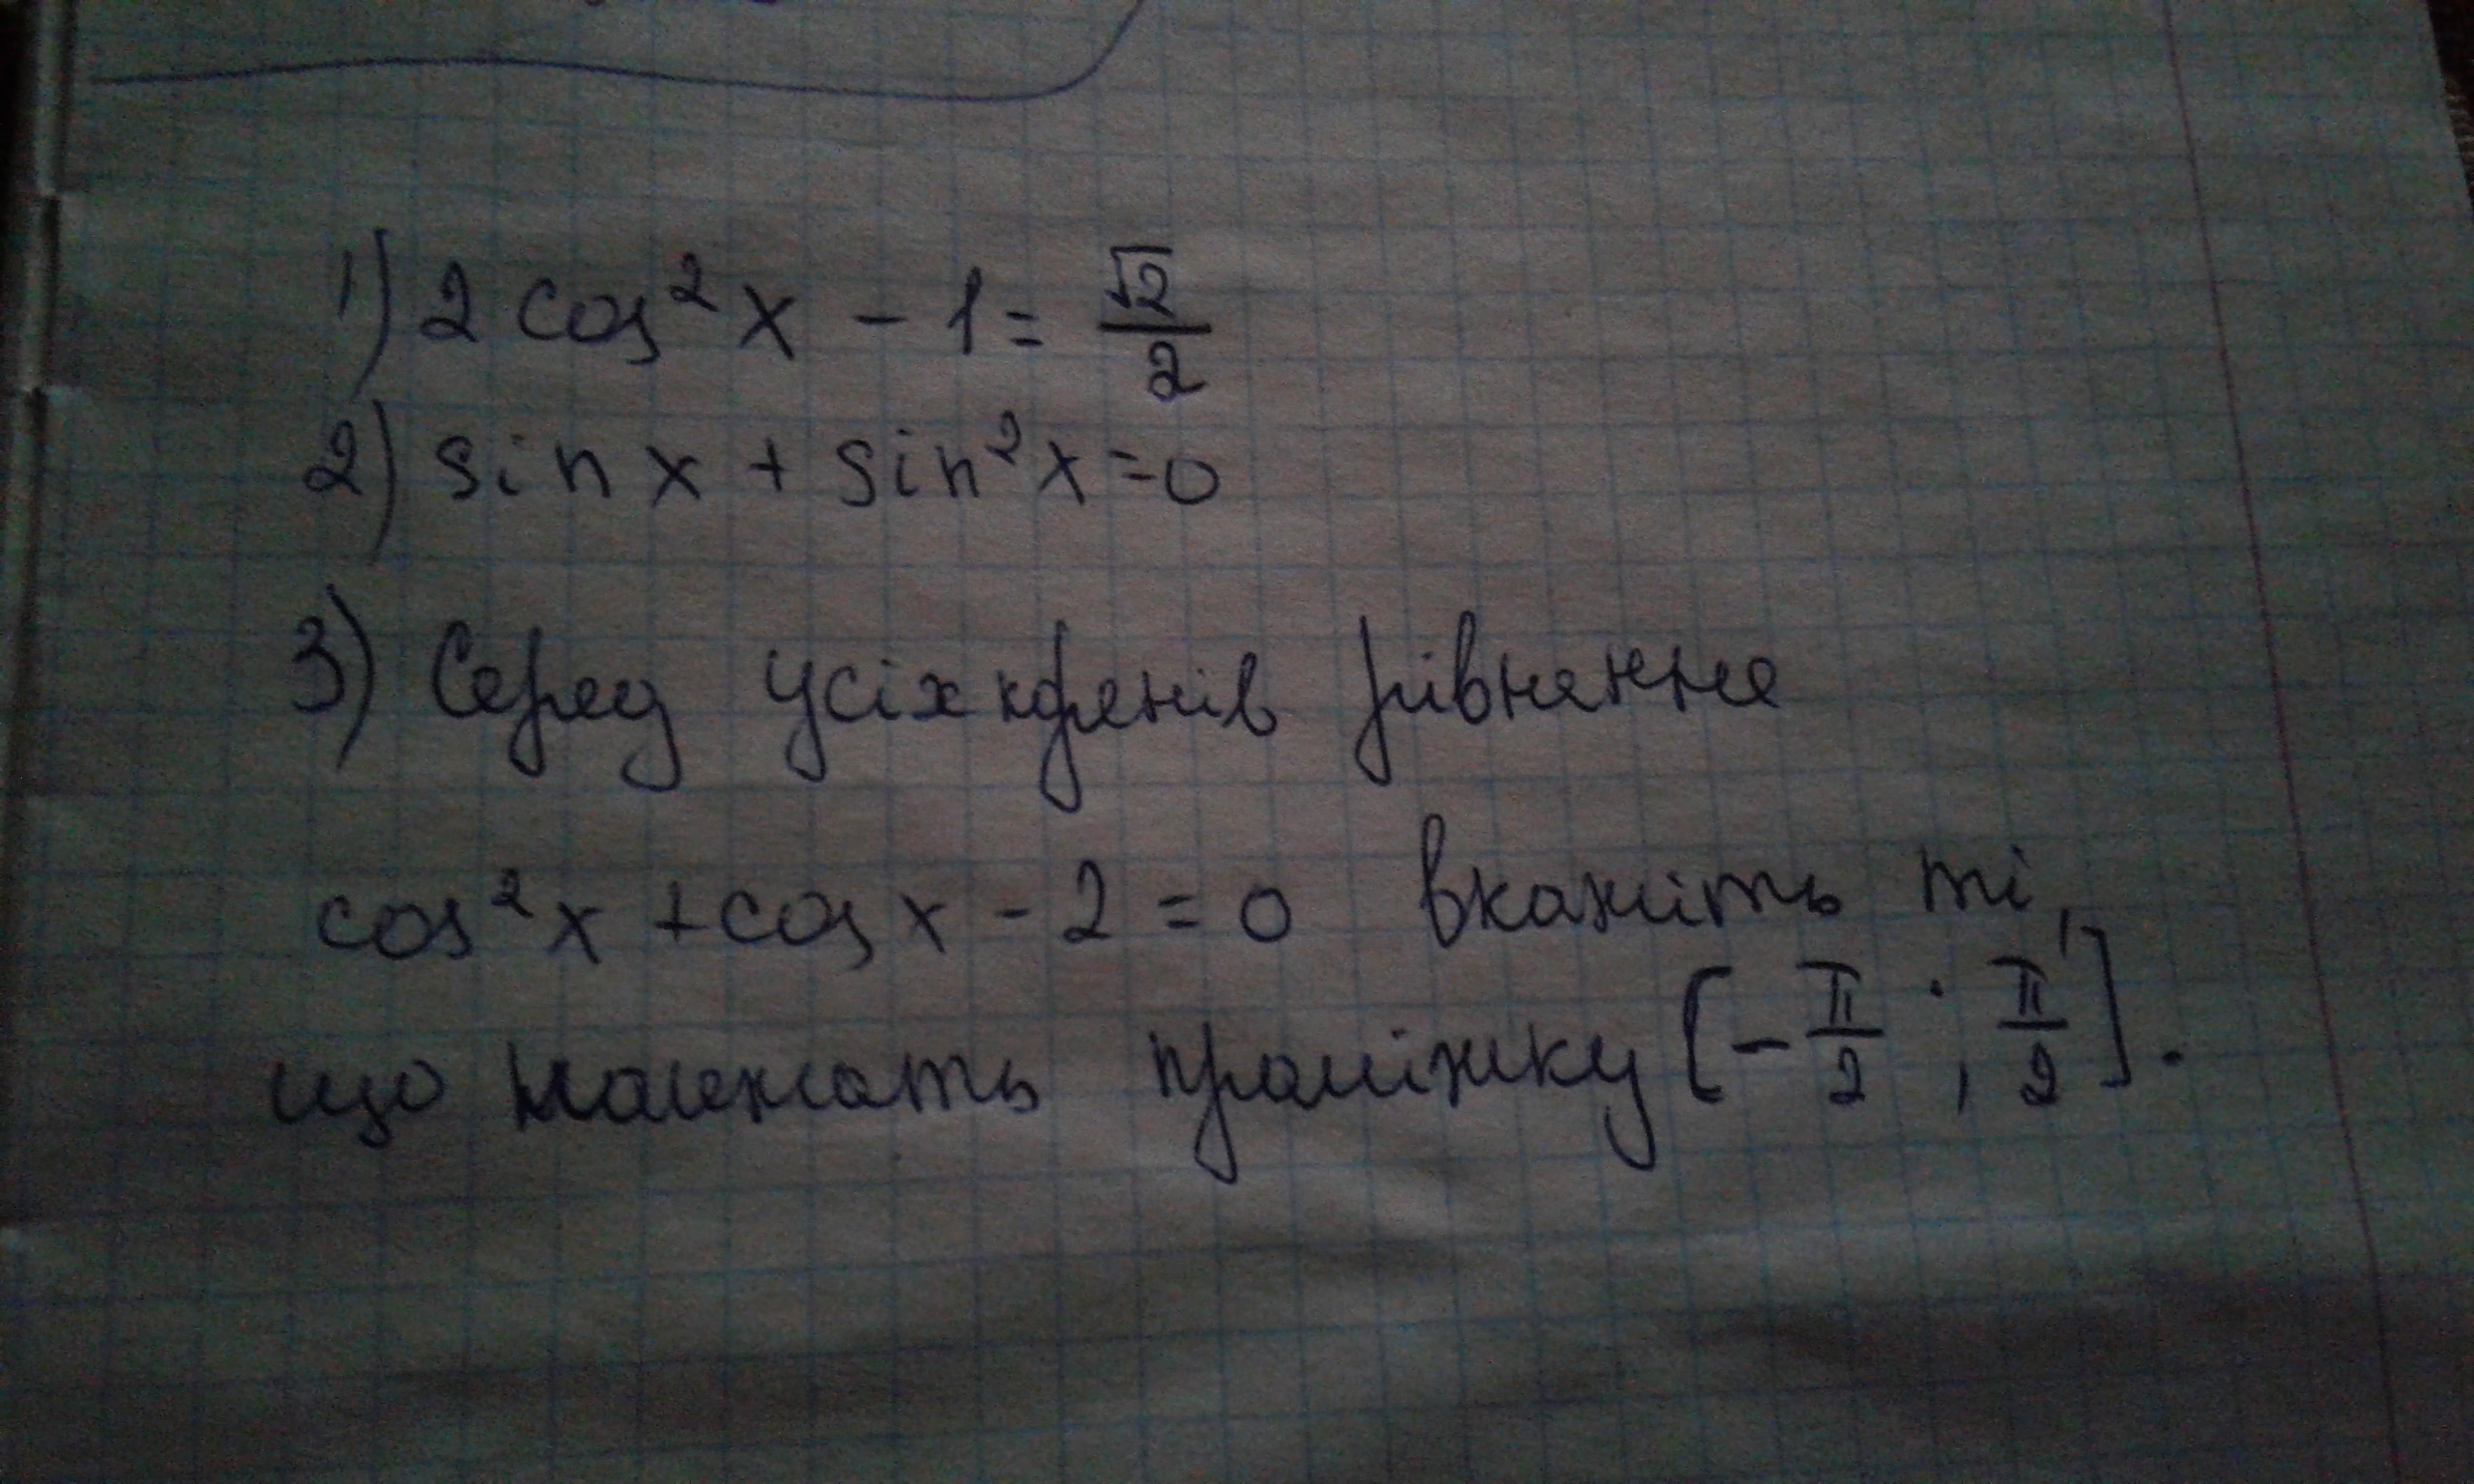 1) 2 cos²x - 1 = √2/2
2) sin x + sin²x = 0
3) Серед усіх коренів рівняння
cos²x + cos x - 2 = 0 вкажіть ті,
що належать проміжку [-π/2 ; π/2].